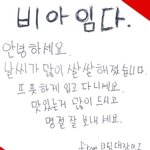 비아임다.
안녕하세요.
날씨가 많이 쌀쌀해졌습니다.
뜨뜻하게 입고 다니세요.
맛있는거 많이 드시고
명절 잘 보내세요.
from